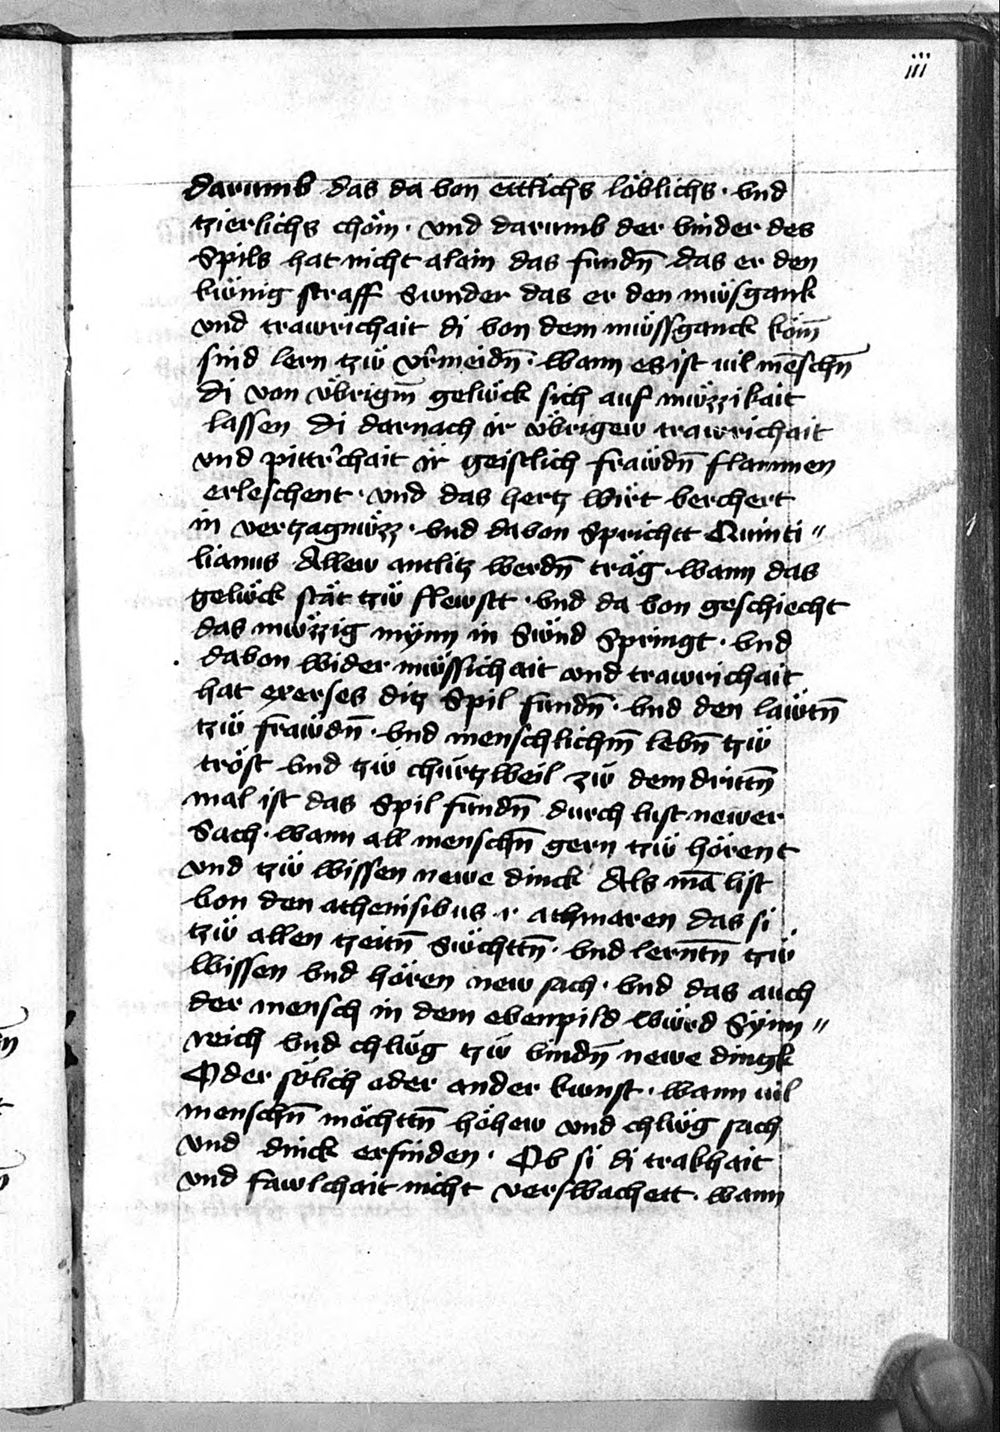 iii
darumb das da von ettlichs löblichs · vnd
tzierlichs chöm̄ · vnd darumb der vinder des
Spils hat nicht alain das fundn̄ das er den
kwnig straff Swnder das er den mẅsgank
vnd trawrichait di von dem mẅssganck köm̄
sind lern tzẅ vermeidn̄ · wann es ist vil mēschn̄
di von v̈brigm̄ gelẅck sich auf mẅzzikait
lassen di darnach ir v̈brigew trawrichait
vnd pittrchait ir geistlich frawdn̄ flammen
erleschent · vnd das hertz wirt verchert
in vertzagnẅzz · vnd davon Sprichtt Quinti〃
lianus Allew antlitz werdn̄ träg · wann das
gelẅck stät tzẅ flewstt · vnd da von geschiecht
das mẅzzig mynn in Sẅnd Springt · vnd
davon wider mẅssichait vnd trawrichait
hat exerses ditz Spil fundn̄ · vnd den lawtn̄
tzẅ frawdn̄ · vnd menschlichm̄ lebn̄ tzẅ
tröst vnd tzẅ chürtzweil zẅ dem drittn̄
mal ist das Spil fundn̄ durch lust newer
Sach · wann all menschn̄ gern tzẅ hörent
vnd tzẅ wissen newe dinck Als mā list
von den athenisibus · i · athinaren das si
tzẅ allen tzeitn̄ Sẅchttn̄ · vnd lerntn̄ tzẅ
wissen vnd hören new sach · vnd das auch
der mensch in dem ebenpild wurd Synn〃
reich vnd chlẅg tzẅ vindn̄ newe dingk
Oder sölich oder ander kwnst · wann vil
menschn̄ möchttn̄ höhew vnd chlẅg sach
vnd dinck erfinden · Ob si di trakhait
vnd fawlchait nicht verswachett · wann